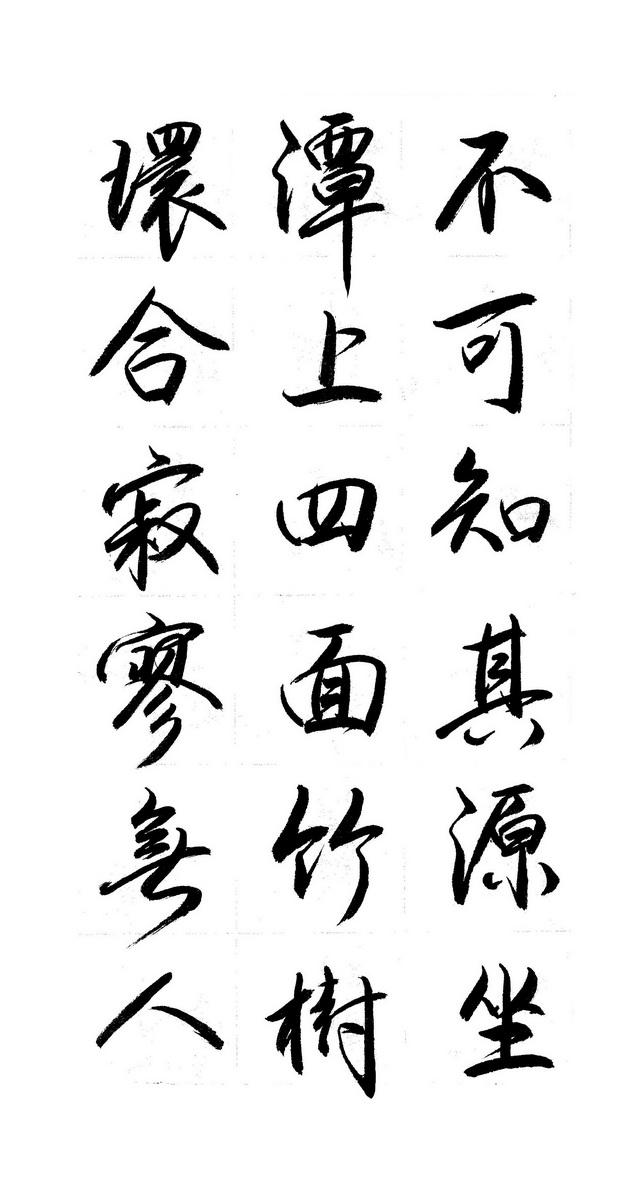 不可知其源坐
潭上四面竹樹
環合寂寥無人